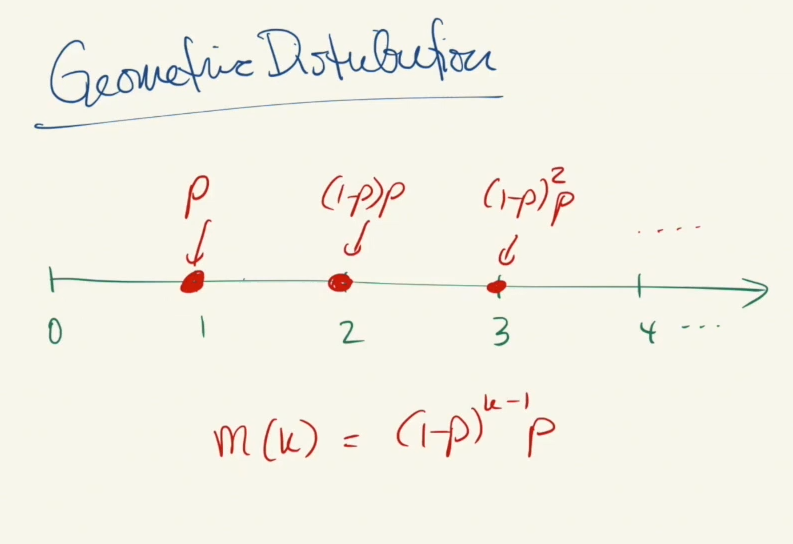 Geometric Distribution
p (1-p)p (1-p)²p ....
0 1 2 3 4 ...
m(k) = (1-p)^{k-1} p